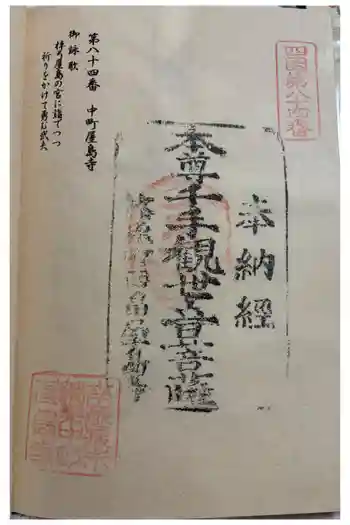 四国第八十四番
奉納経
本尊千手観世音菩薩
屋島寺
第八十四番 中町屋島寺
御詠歌
梓弓屋島の宮に詣でつつ
祈りをかけて勇む武夫